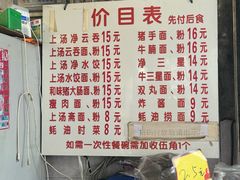 价目表 先付后食
上汤净云吞15元
上汤云吞面、粉15元
上汤净水饺15元
上汤水饺面、粉15元
和味猪大肠面、粉15元
瘦肉面、粉15元
上汤斋面、粉8元
蚝油时菜8元
猪手面、粉16元
牛腩面、粉16元
净三星14元
牛三星面、粉14元
双丸面、粉14元
炸酱面9元
蚝油捞面9元
如需一次性餐碗需加收伍角1个